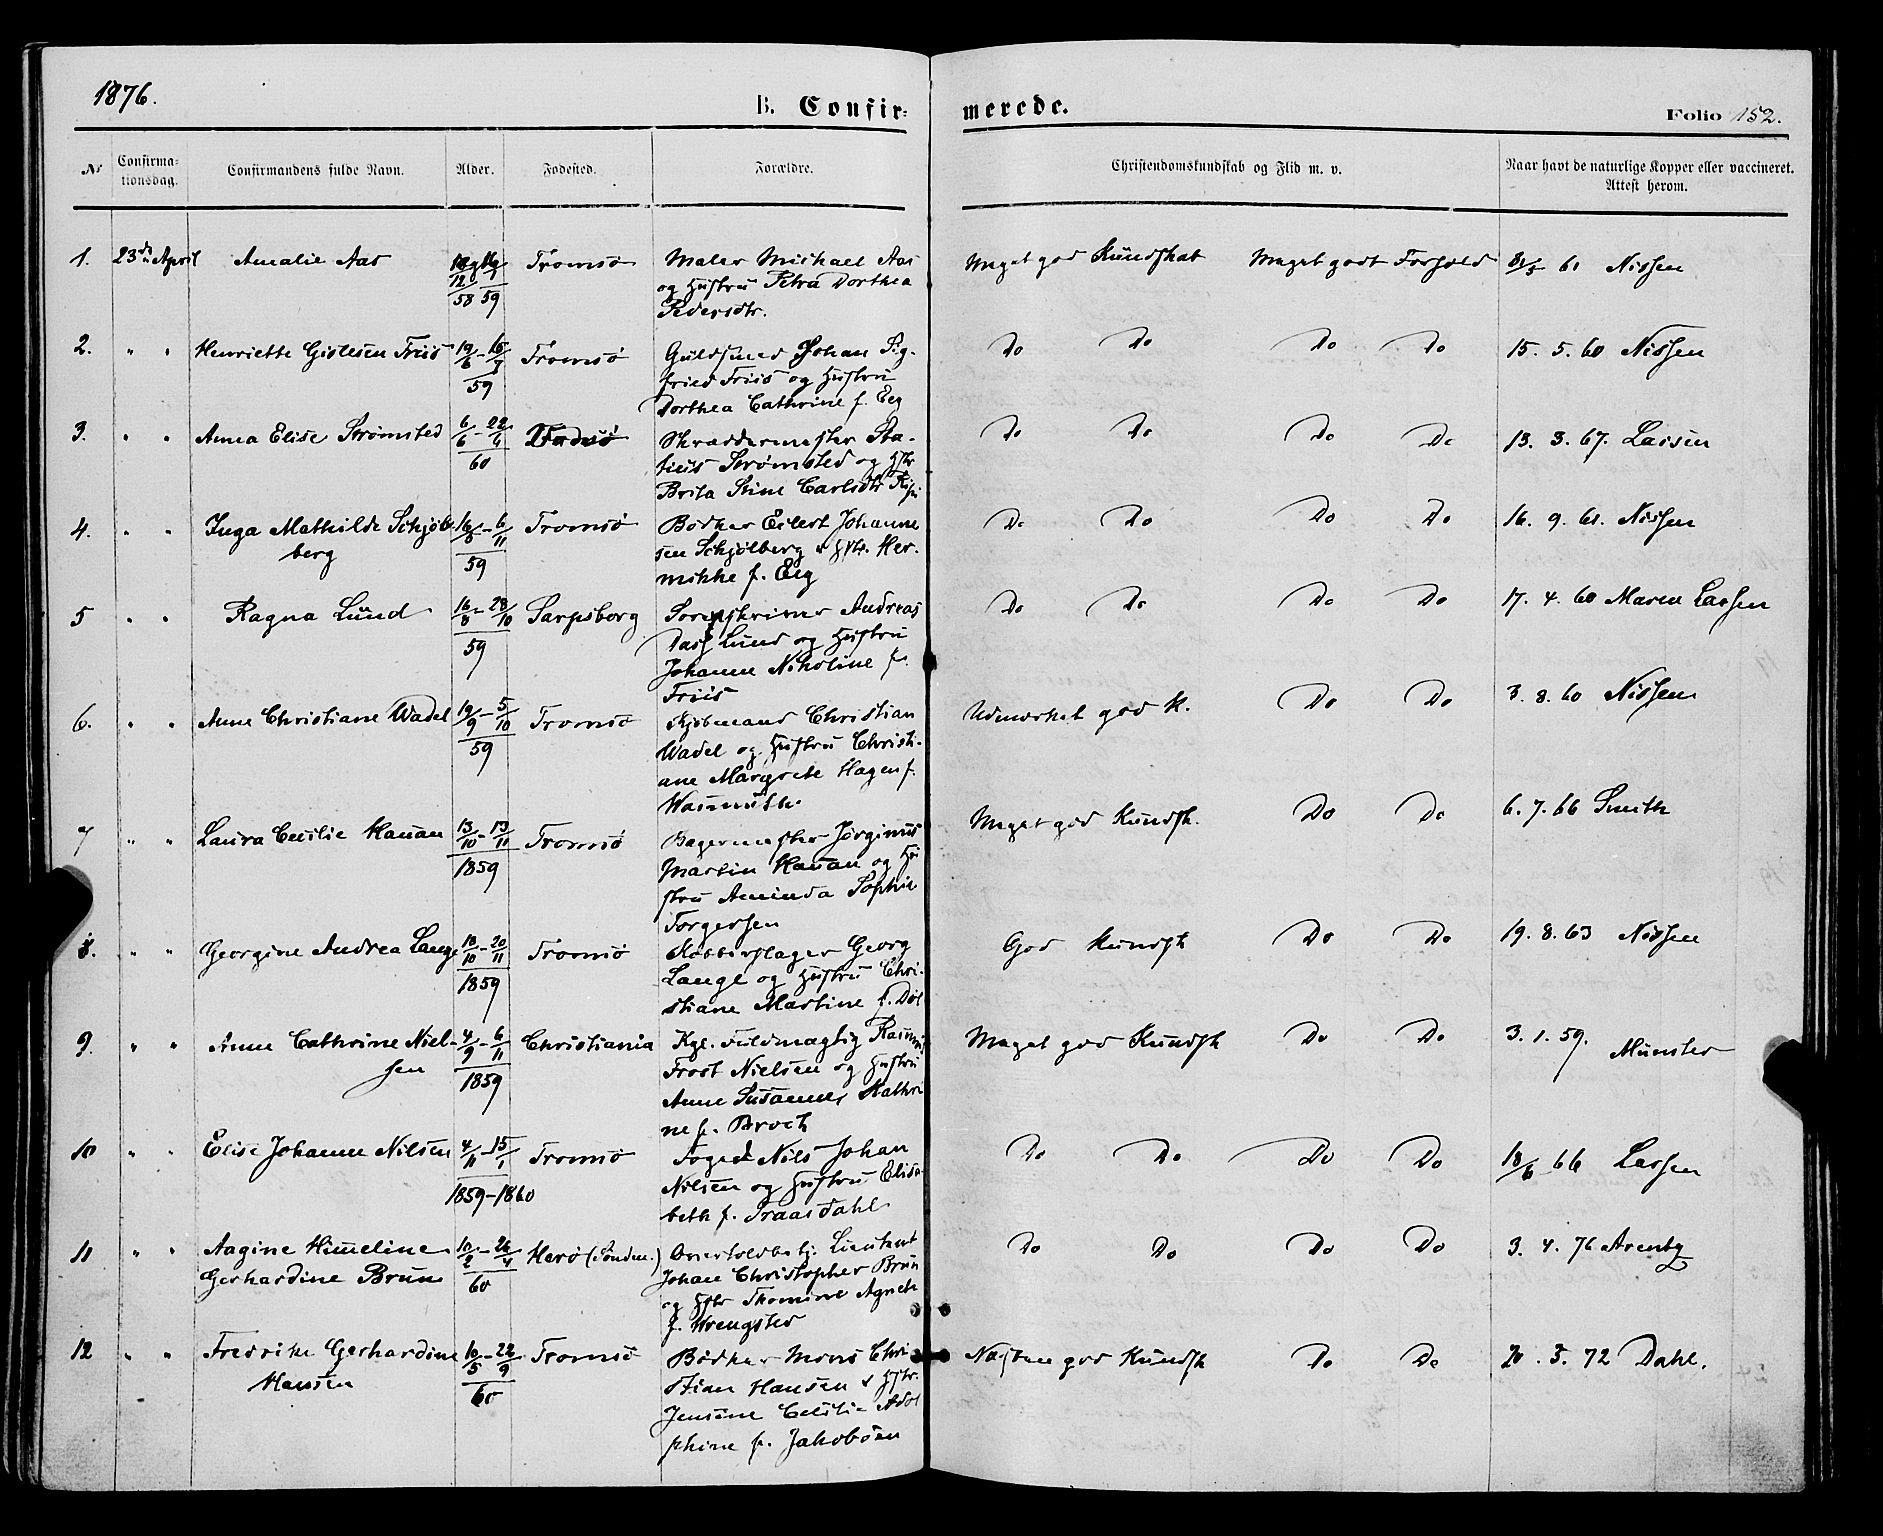 1876.
B. Confir-
merede.
Folio 152.
No
Confirma-
tionsdag.
Confirmandens fulde Navn.
Alder.
Fødested.
Forældre.
Christendomskundskab og Flid m. v.
Naar havt de naturlige Kopper eller vaccineret.
Attest herom.
1. 23de April Amalie Aas 58 59 Tromsø Maler Michael Aas Meget god Kundskab Meget godt Forhold 61 Nissen
og Hustru Petra Dorthea
Pedersdtr.
2. " " Henriette Gislesen Friis 19/6 - 16/7 Tromsø Guldsmed Johan Sig- Do Do Do Do 15. 5. 60 Nissen
59 fried Friis og Hustru
Dorthea Cathrine f. Eeg
3. " " Anna Elise Strømsted 6/6 - 22/6 Skræddermester Sta- Do Do Do Do 13. 3. 67. Lassen
60 tius Strømsted og Hstr
Brita Stine Carlsdtr
4. " " Inga Mathilde Schjøl- - 6/11 Tromsø Bødker Eilert Johanne Do Do Do Do 16. 9. 61. Nissen
berg 59 sen Schjølberg & Hstr. Hen-
rikke f. Eeg
5 " " Ragna Lund 16/8 - 28/10 Sarpsborg Sorenskriver Andreas Do Do Do Do 17. 4. 60 Maren Lassen
59 Dass Lund og Hustru
Johanne Nikoline f.
Friis
6. " " Anne Christiane Wadel 19/9 - 5/10 Tromsø Kjøbmand Christian Udmærket god K. Do Do 3. 8. 60 Nissen
59 Wadel og Hustru Christi-
ane Margrete Hagen f.
Wasmuth
7 " " Laura Cecilie Hauan 13/10 - 13/11 Tromsø Bagermester Jørginus Meget god Kundsk. Do Do 6. 7. 66 Smith
1859 Martin Hauan og Hu
stru Aminda Sophie
Torgersen
8. " " Georgine Andrea Lange 18/10 - 20/11 Tromsø Kobberslager Georg God Kundsk Do Do 19. 8. 63 Nissen
1859 Lange og Hustru Chri-
stiane Martine f.
9. " " Anne Cathrine Niel- 4/9 - 6/11 Christiania Kgl. Fuldmægtig Rasmus Meget god Kundsk Do Do 3. 1. 59. Münster
sen 1859 Frost Nielsen og Hustru
Anne Susanne Kathri
ne f. Broch
10 " " Elise Johanne Nilsen 4/11 - 15/1 Tromsø Foged Nils Johan Do Do Do Do 18/6 66 Lassen
1859-1860 Nilsen og Hustru Elisa-
beth f. Traasdahl
11 " " Aagine Himeline 10/2 - 26/4 Herø (Søndm.) Overtoldbetj. Lieutnant Do Do Do Do 3. 4. 76
Gerhardine Brun 60 Johan Christopher Brun
og Hstr Thomine Agnete
f. Wrengsted
12 " " Fredrike Gerhardine 10/5 - 22/9 Tromsø Bødker Mons Chri- Næsten god Kundsk Do Do 20. 5. 72 Dahl.
Hansen 60 stian Hansen & Hstr.
Jensine Cecilie Adol
phine f. Jakobsen